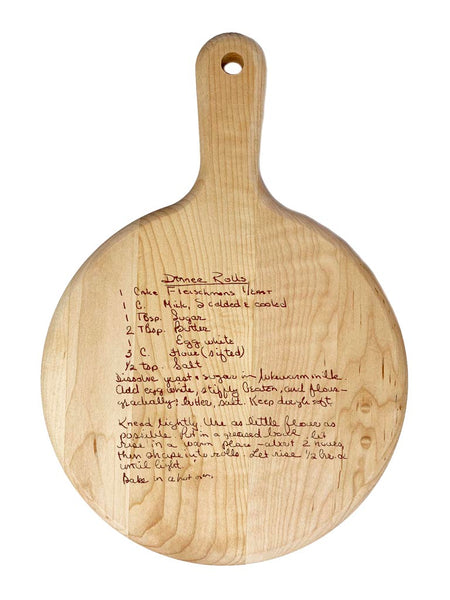 Dinner Rolls
1 Cake Fleischmans Yeast
1 C. Milk, Scalded & cooled
1 Tbsp. Sugar
2 Tbsp. Butter
1 Egg white
3 C. Flour (sifted)
1/2 tsp. Salt
Dissolve yeast & sugar in lukewarm milk.
Add egg white, stiffly beaten, and flour
gradually, butter, salt. Keep dough soft.
Knead lightly. Use as little flour as
possible. Put in a greased bowl. let
rise in a warm place - about 2 hours,
then shape into rolls. Let rise 1/2
until light
Bake in a hot oven.